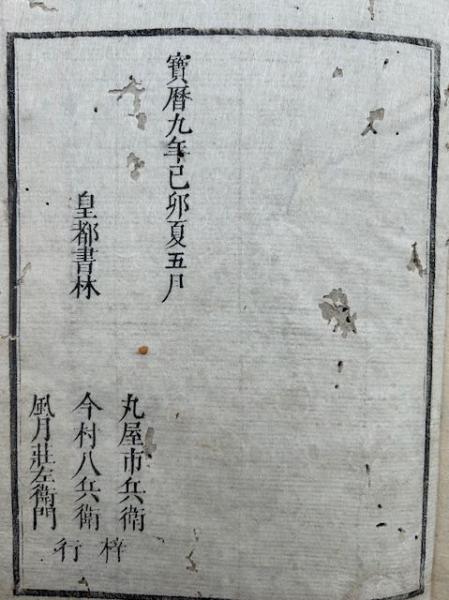 寶暦九年己卯夏五月
皇都書林
丸屋市兵衛
今村八兵衛
風月莊左衛門
梓行